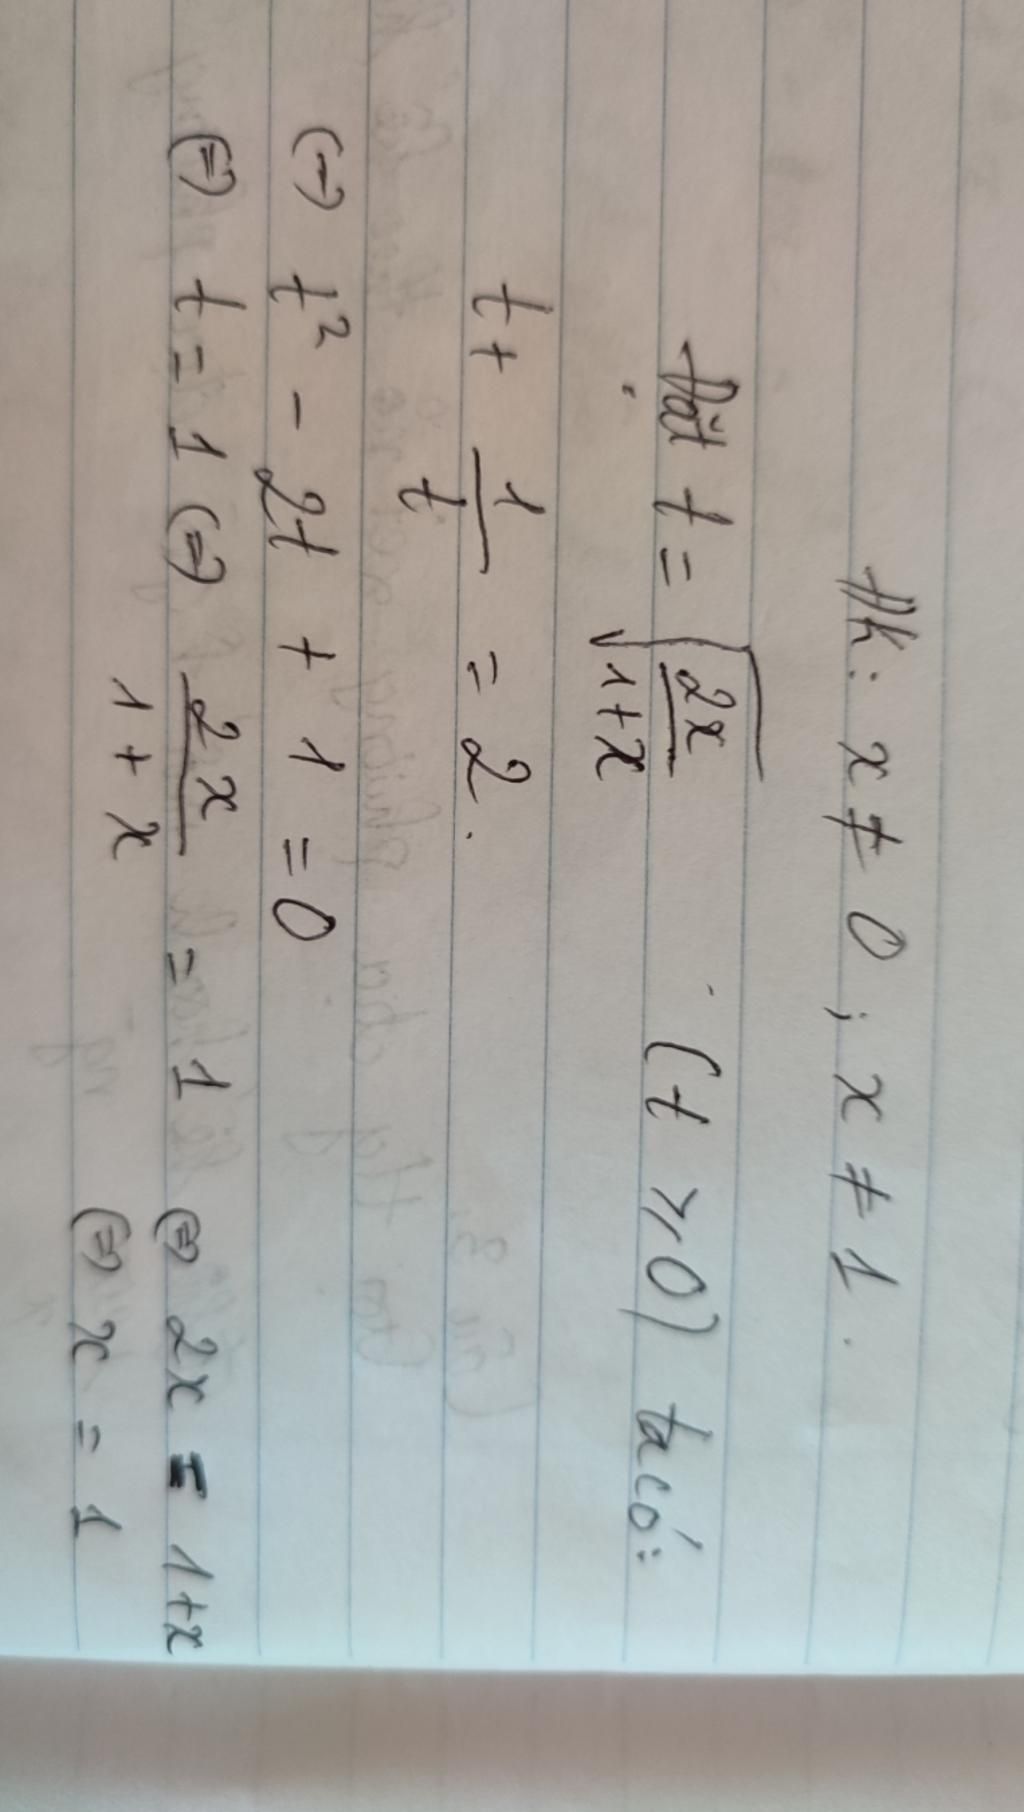 Đk: x ≠ 0 ; x ≠ 1.
Đặt t = √(2x/(1+x)) (t ≥ 0) ta có:
t + 1/t = 2.
(=) t² - 2t + 1 = 0
(=) t = 1 (=) 2x/(1+x) = 1 (=) 2x = 1+x
(=) x = 1